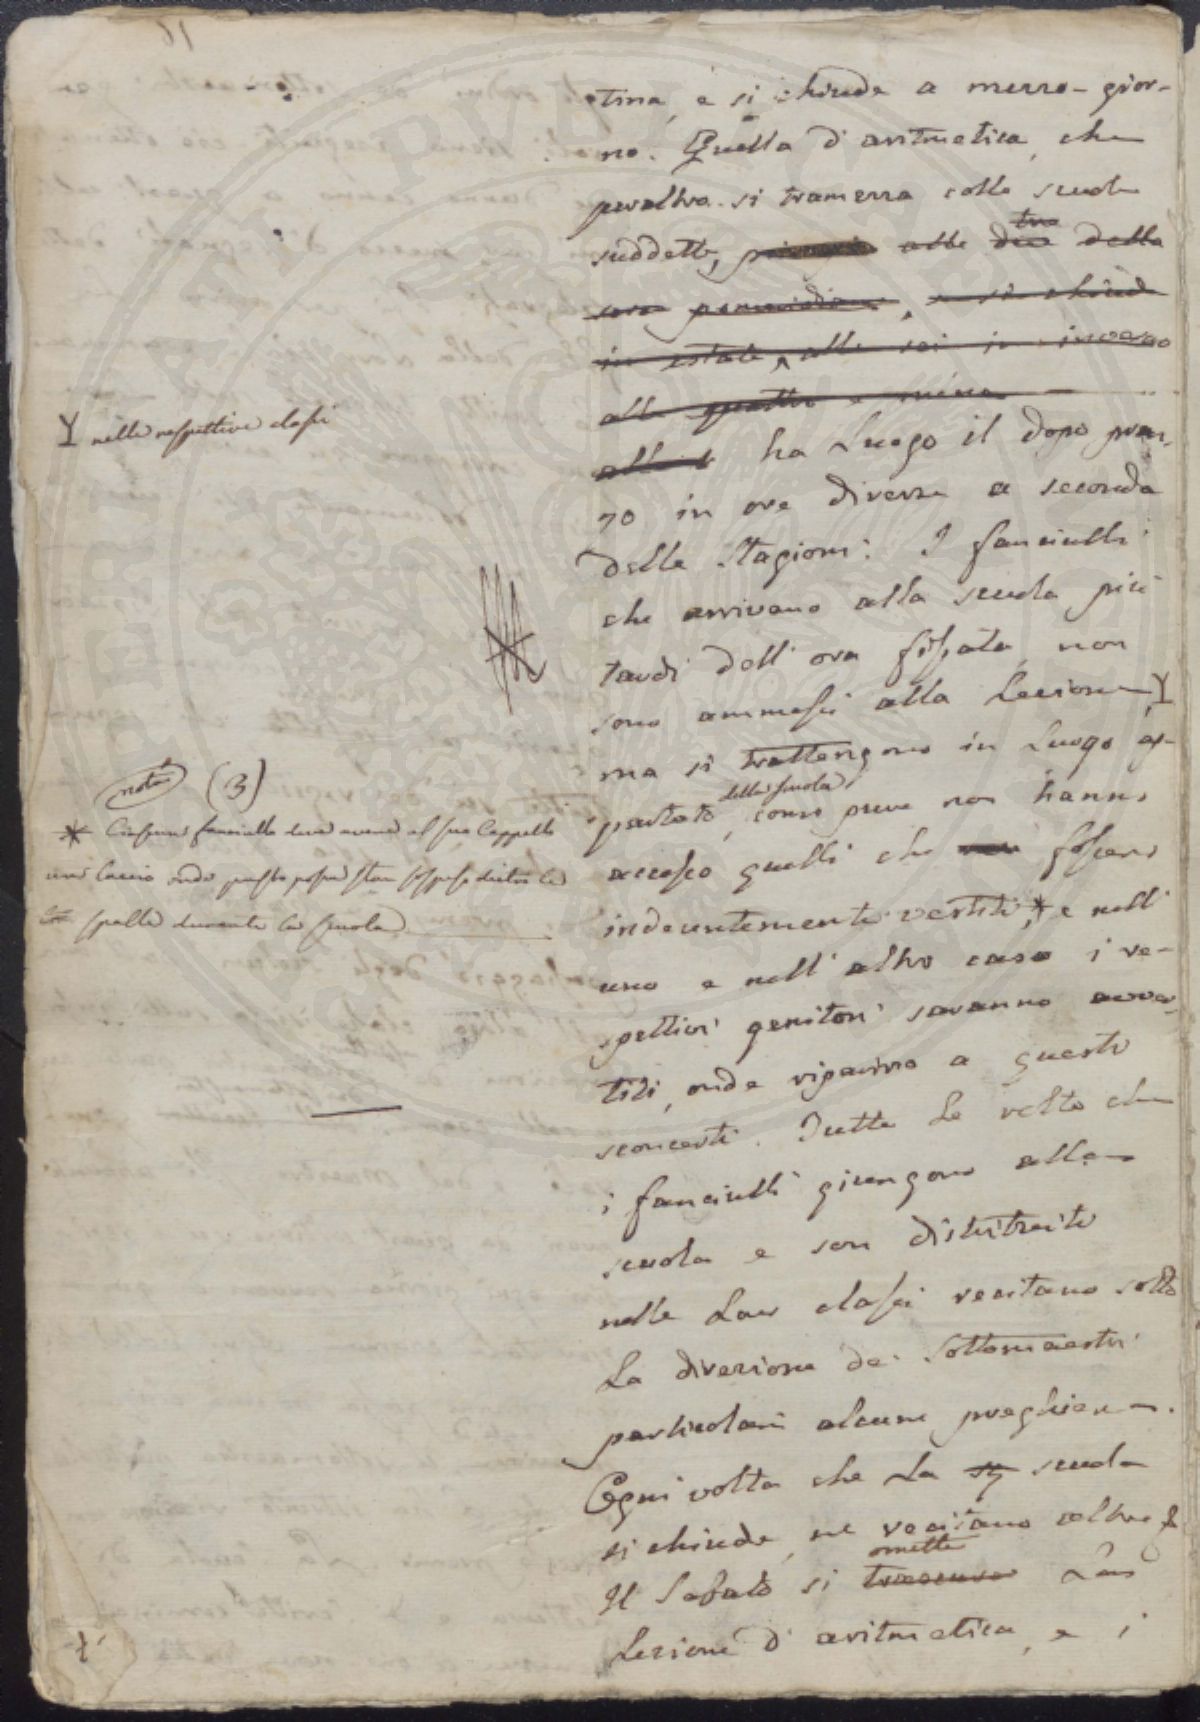 tina, e si chiude a mezzo-gior-
no. Quella d'aritmetica, che
peraltro si tramezza colle scuole
suddette, alle due tre della
sera pomeridiana, e si chiude
in estate alle sei in inverno
alle quattro e mezza
alle ha luogo il dopo pran-
zo in ore diverse a seconda
delle stagioni: I fanciulli
che arrivano alla scuola più
tardi dell'ora fissata, non
sono ammessi alla Lezione,
ma si trattengono in Luogo ap-
partato della scuola, come pure non hanno
accesso quelli che non fossero
indecentemente vestiti,* e nell'
uno e nell'altro caso i re-
spettivi genitori saranno avver-
titi, onde riparino a questi
sconcerti. Tutte Le volte che
i fanciulli giungono alla
scuola e son distribuiti
nelle Loro classi recitano sotto
La direzione de' Sottomaestri
particolari alcune preghiere.
Ogni volta che La scuola
si chiude, ne recitano altre
Il Sabato si trascura omette La
Lezione d'aritmetica, e i
nelle respettive classi
nota (3)
* Ciascun fanciullo deve avere al suo Cappello
un laccio onde questo possa stare sospeso dietro le
spalle durante la scuola